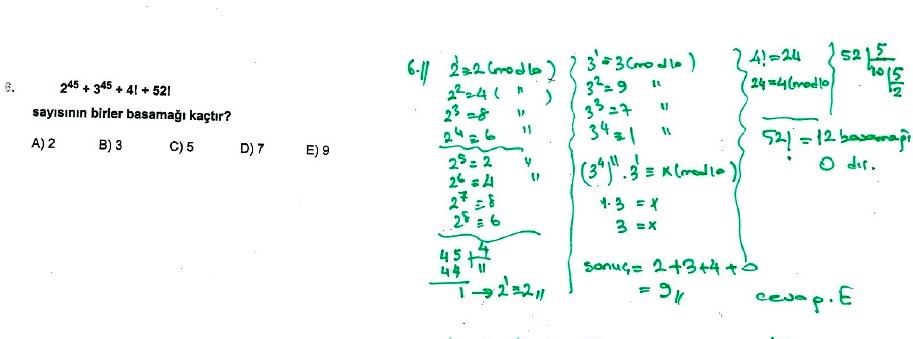 6.
2⁴⁵ + 3⁴⁵ + 4! + 52!
sayısının birler basamağı kaçtır?
A) 2 B) 3 C) 5 D) 7 E) 9
6-//
2¹≡2 (mod10)
2²=4 ( " )
2³=8 "
2⁴≡6 "
2⁵=2 "
2⁶=4 "
2⁷=8
2⁸≡6
45 | 4
44 | 11
1 → 2¹=2//
3¹≡3 (mod10)
3²=9 "
3³=7 "
3⁴≡1 "
(3⁴)¹¹.3¹≡x (mod10)
1.3 = x
3 = x
sonuç = 2+3+4+0
= 9//
4!=24
24=4 (mod10
52 | 5
10 | 5
2
52! = 12 basamağı
0 dır.
cevap. E